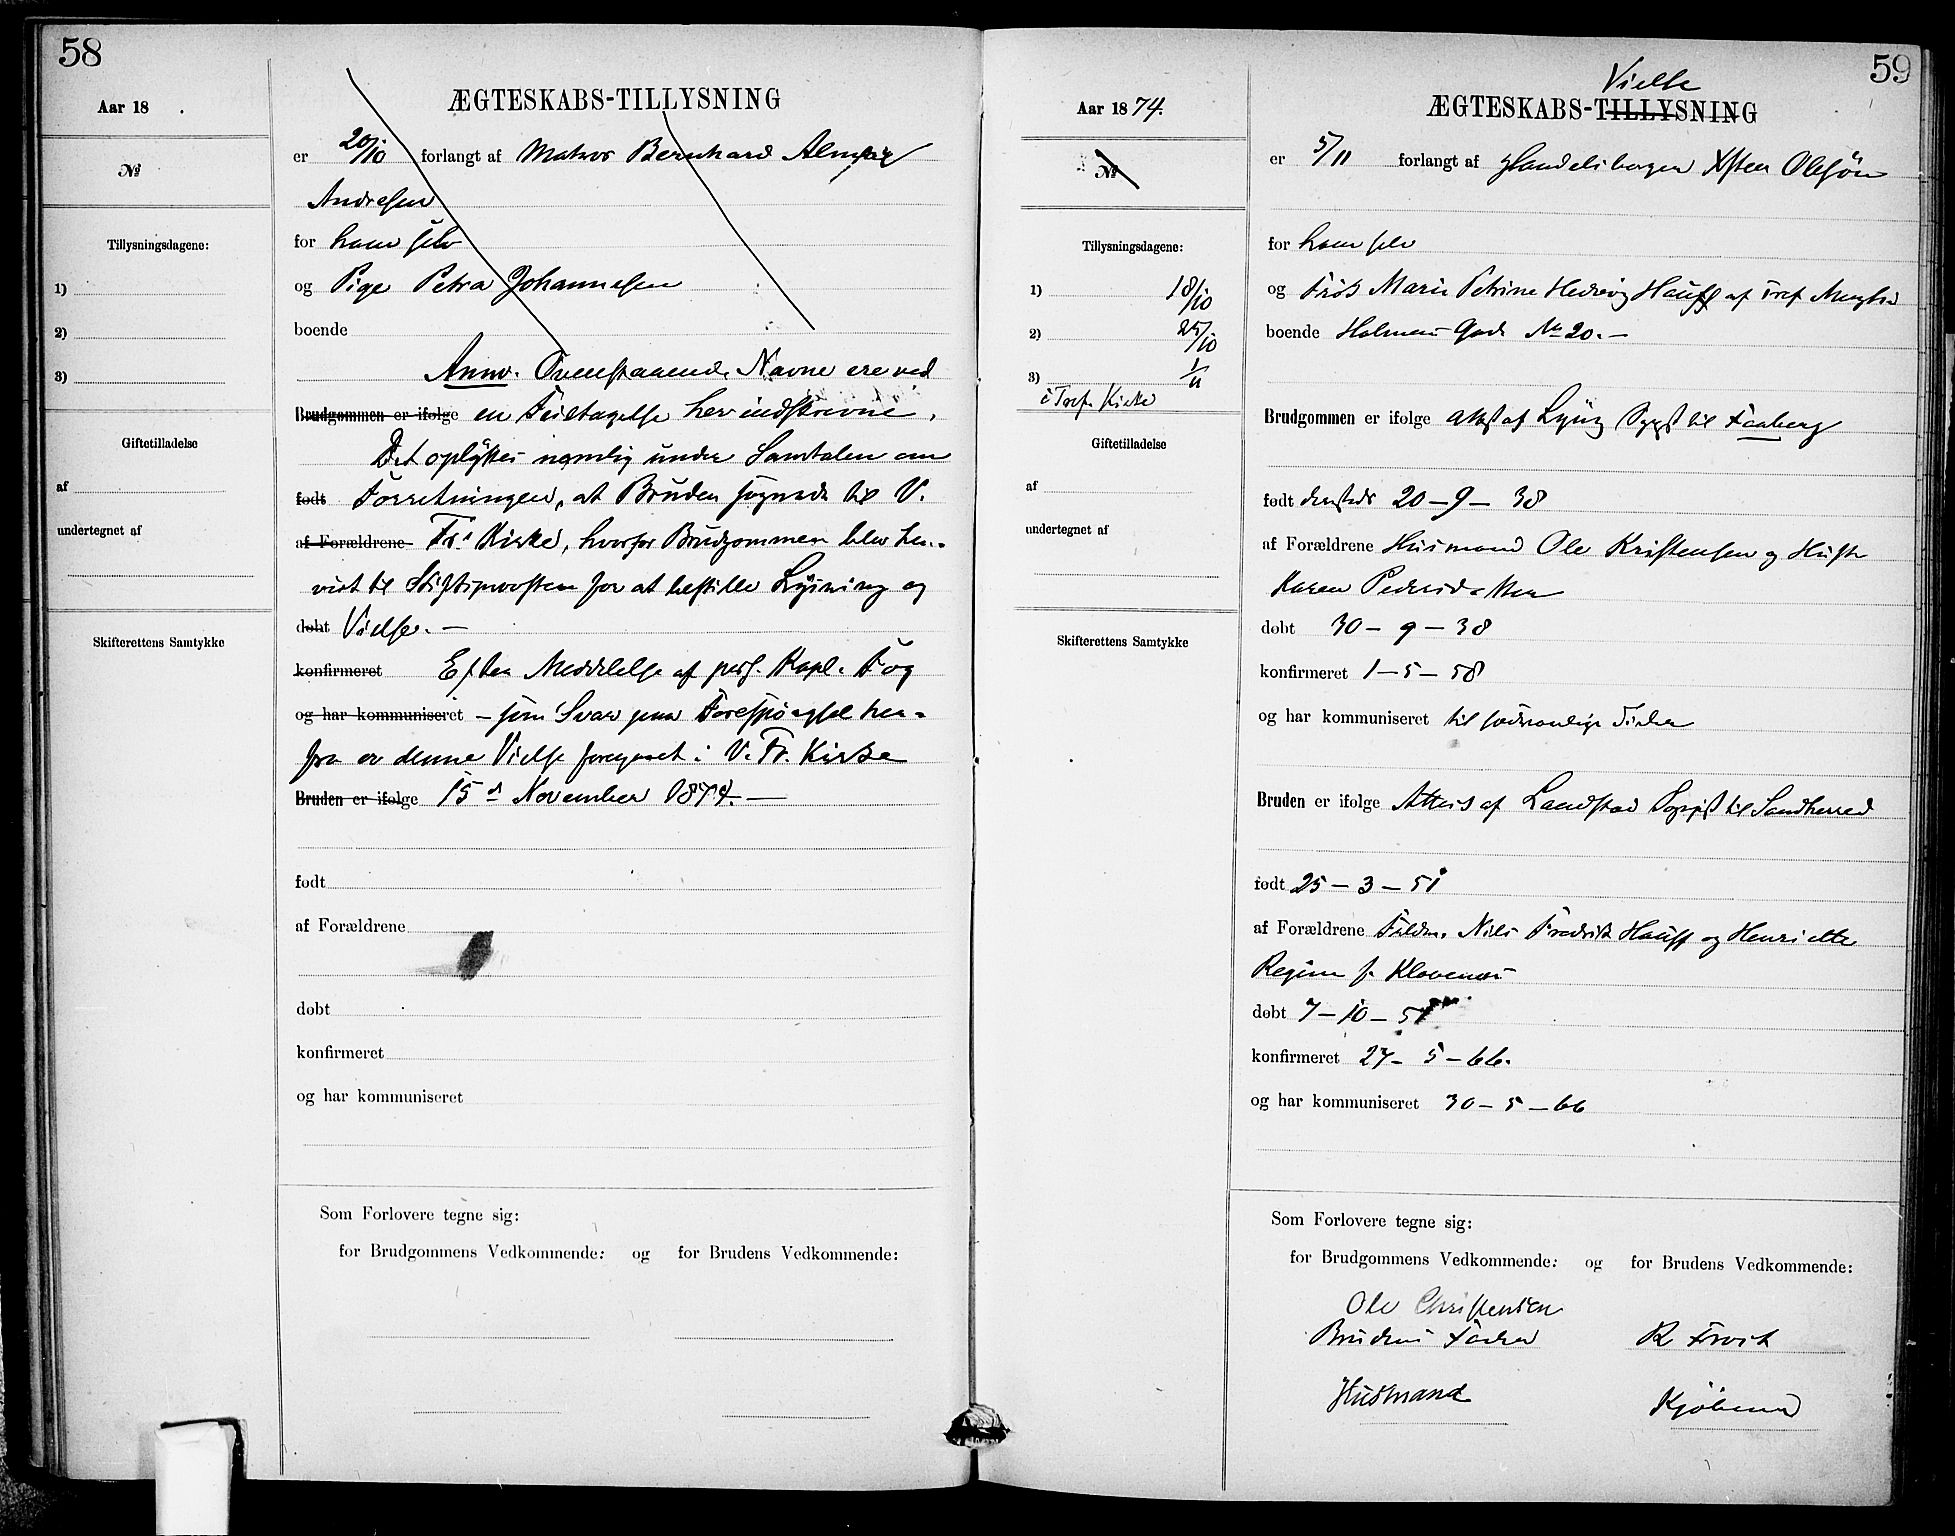 58
Aar 18 .
№
Tillysningsdagene:
1)
2)
3)
Giftetilladelse
af
undertegnet af
Skifterettens Samtykke
ÆGTESKABS-TILLYSNING
er 20/10 forlangt af Matros Bernhard
Andresen
for ham selv
og Pige Petra Johannesen
boende
Anm. Ovenstaaende Navne ere ved
Brudgommen er ifølge en Feiltagelse her indskrevne.
Det oplystes nemlig under Samtalen om
født Forretningen, at Bruden sognede til V.
af Forældrene Frs Kirke, hvorfor Brudgommen blev hen-
vist til Stiftsprovsten for at bestille Lysning og
døbt Vielse. —
konfirmeret Efter Meddelelse af pers. Kapl. Fog
og har kommuniseret – som Svar paa Forespørgsel her-
fra er denne Vielse foregaaet i V. Fr. Kirke
Bruden er ifølge 15de November 1874. —
født
af Forældrene
døbt
konfirmeret
og har kommuniseret
Som Forlovere tegne sig:
for Brudgommens Vedkommende: og for Brudens Vedkommende:
59
Aar 1874.
№
Tillysningsdagene:
1) 18/10
2) 25/10
3) 1/11
i Tref. Kirke
Giftetilladelse
af
undertegnet af
Skifterettens Samtykke
Vielse
ÆGTESKABS-TILLYSNING
er 5/11 forlangt af Handelsborger Olesøn
for ham selv
og Frøk Marie Petrine Hedevig Hauff af Tref. Menighed
boende Holmens Gade No 20. –
Brudgommen er ifølge Attest af Sogpst til Faaberg
født dersteds 20 – 9 – 38
af Forældrene Husmand Ole Kristensen og Hustr
Karen Pedersdatter
døbt 30 – 9 – 38
konfirmeret 1 – 5 – 58
og har kommuniseret til sædvanlige Tider
Bruden er ifølge Attest af Landstad Sogpst til Sandherred
født 25 – 3 – 51
af Forældrene Nils Fredrik Hauff og Henriette
Regine f. Klovenæs
døbt 7 – 10 – 51
konfirmeret 27 – 5 – 66.
og har kommuniseret 30 – 5 – 66
Som Forlovere tegne sig:
for Brudgommens Vedkommende: og for Brudens Vedkommende:
Ole Christensen
Fader R Frost
Husmand